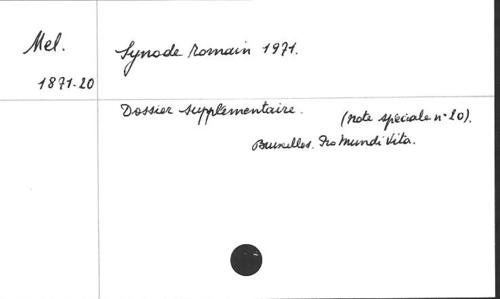 Mel.
Synode romain 1971.
1871-20
Dossier supplémentaire.
(note spéciale n° 20).
Bruxelles. Pro Mundi Vita.